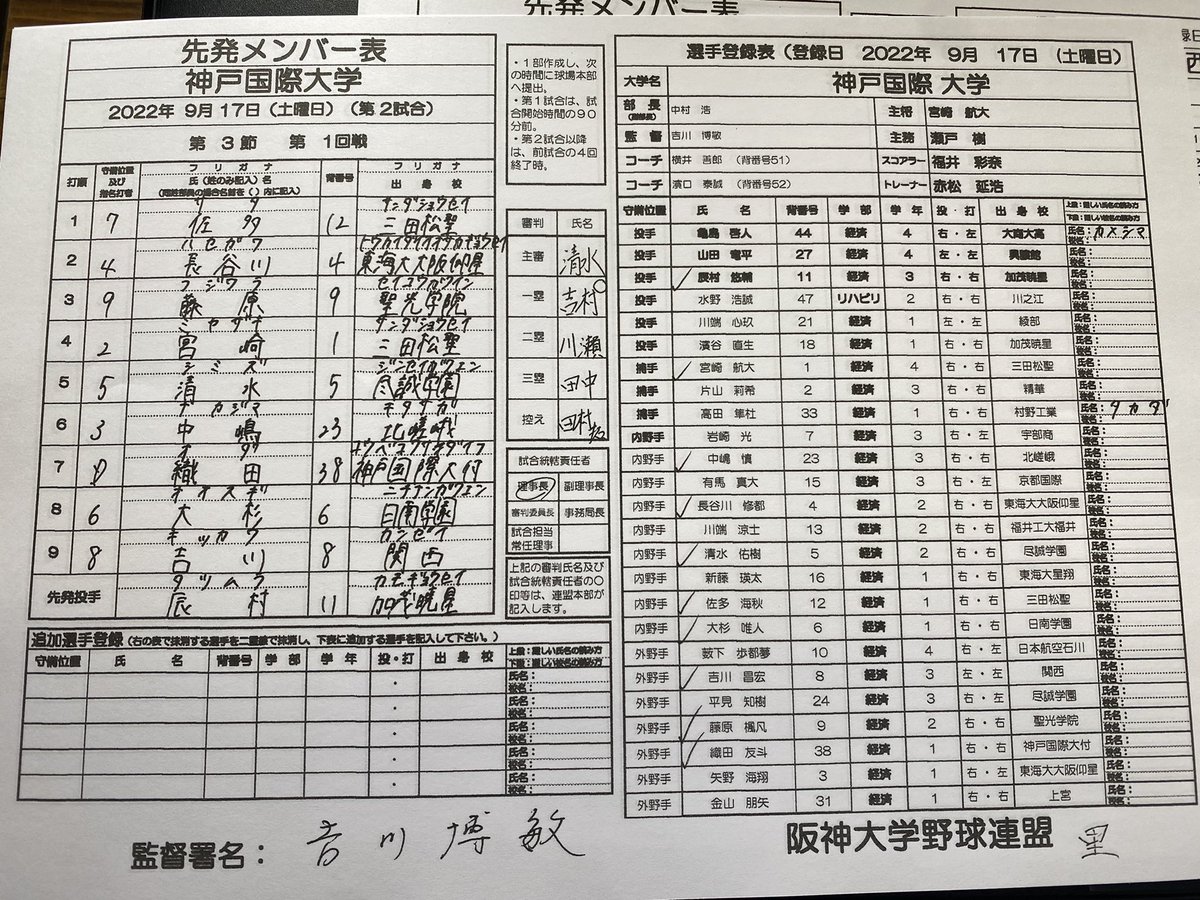 先発メンバー表
先発メンバー表
神戸国際大学
2022年 9月 17日(土曜日)(第2試合)
第 3節 第 1回戦
打順 守備位置及び指名打者 フリガナ 氏(姓のみ記入)名 (同姓部員の場合名前を()内に記入) 背番号 フリガナ 出身校
サタ サンダショウセイ
1 7 佐多 12 三田松聖
ハセガワ
2 4 長谷川 4 東海大大阪仰星
フジワラ セイコウガクイン
3 9 藤原 9 聖光学院
ミヤザキ サンダショウセイ
4 2 宮崎 1 三田松聖
シミズ ジンセイガクエン
5 5 清水 5 尽誠学園
ナカジマ キタサガ
6 3 中嶋 23 北嵯峨
オダ
7 D 織田 38 神戸国際大付
オオスギ ニチナンガクエン
8 6 大杉 6 日南学園
キッカワ カンゼイ
9 8 吉川 8 関西
タツムラ カモギョウセイ
先発投手 辰村 11 加茂暁星
・1部作成し、次の時間に球場本部へ提出。
・第1試合は、試合開始時間の90分前。
・第2試合以降は、前試合の4回終了時。
審判 氏名
主審 清水
一塁 吉村
二塁 川瀬
三塁 田中
控え 田村
試合統轄責任者
理事長 副理事長
審判委員長 事務局長
試合担当常任理事
上記の審判氏名及び試合統轄責任者の○印等は、連盟本部が記入します。
追加選手登録(右の表で抹消する選手を二重線で抹消し、下表に追加する選手を記入して下さい。)
守備位置 氏名 背番号 学部 学年 投・打 出身校 上段:難しい氏名の読み方 下段:難しい校名の読み方
・ 氏名: 校名:
・ 氏名: 校名:
・ 氏名: 校名:
・ 氏名: 校名:
・ 氏名: 校名:
監督署名: 吉川博敏
選手登録表(登録日 2022年 9月 17日 (土曜日)
大学名 神戸国際 大学
部長 (副部長) 中村 浩 主将 宮崎 航大
監督 吉川 博敏 主務 瀬戸 樹
コーチ 横井 善郎 (背番号51) スコアラー 福井 彩奈
コーチ 濱口 泰誠 (背番号52) トレーナー 赤松 延浩
守備位置 氏名 背番号 学部 学年 投・打 出身校 上段:難しい氏名の読み方 下段:難しい校名の読み方
投手 亀島 啓人 44 経済 4 右・左 大商大高 氏名:カメシマ 校名:
投手 山田 竜平 27 経済 4 左・左 興譲館 氏名: 校名:
投手 辰村 悠輔 11 経済 3 右・右 加茂暁星 氏名: 校名:
投手 水野 浩誠 47 リハビリ 2 右・右 川之江 氏名: 校名:
投手 川端 心玖 21 経済 1 左・左 綾部 氏名: 校名:
投手 濱谷 直生 18 経済 1 右・右 加茂暁星 氏名: 校名:
捕手 宮崎 航大 1 経済 4 右・右 三田松聖 氏名: 校名:
捕手 片山 莉希 2 経済 3 右・右 精華 氏名: 校名:
捕手 高田 隼杜 33 経済 1 右・右 村野工業 氏名:タカダ 校名:
内野手 岩崎 光 7 経済 3 右・左 宇部商 氏名: 校名:
内野手 中嶋 慎 23 経済 3 右・右 北嵯峨 氏名: 校名:
内野手 有馬 真大 15 経済 3 右・右 京都国際 氏名: 校名:
内野手 長谷川 修都 4 経済 2 右・左 東海大大阪仰星 氏名: 校名:
内野手 川端 涼士 13 経済 2 右・右 福井工大福井 氏名: 校名:
内野手 清水 佑樹 5 経済 2 右・右 尽誠学園 氏名: 校名:
内野手 新藤 瑛太 16 経済 1 右・右 東海大星翔 氏名: 校名:
内野手 佐多 海秋 12 経済 1 右・右 三田松聖 氏名: 校名:
内野手 大杉 唯人 6 経済 1 右・右 日南学園 氏名: 校名:
外野手 薮下 歩都夢 10 経済 4 右・左 日本航空石川 氏名: 校名:
外野手 吉川 昌宏 8 経済 3 左・左 関西 氏名: 校名:
外野手 平見 知樹 24 経済 3 右・左 尽誠学園 氏名: 校名:
外野手 藤原 楓凡 9 経済 2 右・右 聖光学院 氏名: 校名:
外野手 織田 友斗 38 経済 1 右・右 神戸国際大付 氏名: 校名:
外野手 矢野 海翔 3 経済 1 右・左 東海大大阪仰星 氏名: 校名:
外野手 金山 朋矢 31 経済 1 右・右 上宮 氏名: 校名:
阪神大学野球連盟 里